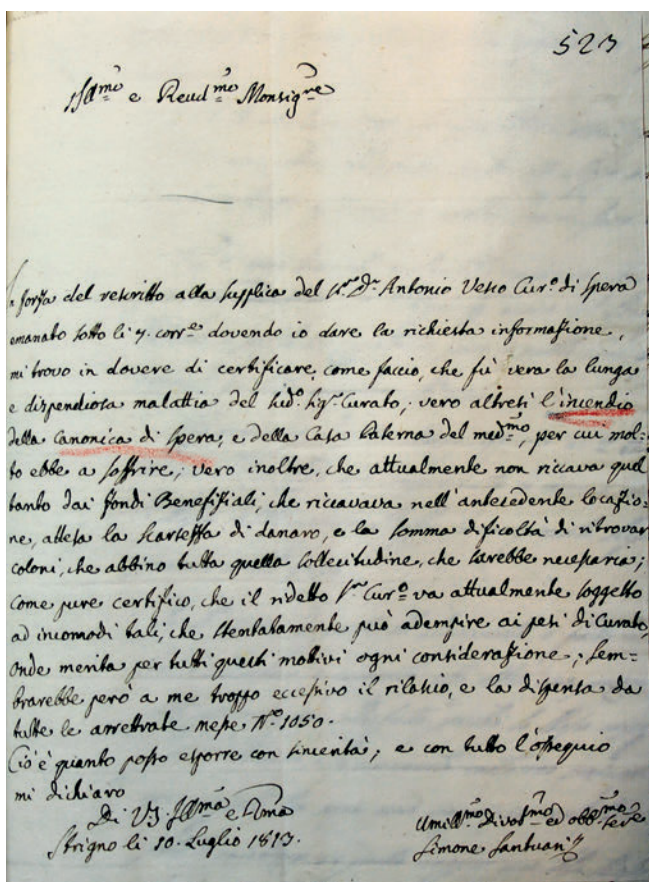 523
Ill.mo e Revd.mo Monsig.re
In forza del rescritto alla supplica del S.r D.n Antonio Vesco Cur.o di Spera
emanato sotto li 7. corr.e dovendo io dare la richiesta informazione,
mi trovo in dovere di certificare, come faccio, che fù vera la lunga
e dispendiosa malattia del sud.o Sig.r Curato; vero altresì l'incendio
della Canonica di Spera, e della Casa Paterna del med.mo, per cui mol=
to ebbe a soffrire; vero inoltre, che attualmente non riccava quel
tanto dai fondi Benefiziali, che riccavava nell'antecedente locazio=
ne, attesa la scarsezza di danaro, e la somma dificoltà di ritrovar
coloni, che abbino tutta quella sollecitudine, che sarebbe necessaria;
come pure certifico, che il ridetto S.r Cur.o va attualmente soggetto
ad incomodi tali, che stentatamente può adempire ai pesi di Curato,
onde merita per tutti questi motivi ogni considerazione; Sem=
brarebbe però a me troppo eccessivo il rilascio, e la dispensa da
tutte le arrettrate messe N.o 1050.
Ciò è quanto posso esporre con sincerità; e con tutto l'ossequio
mi dichiaro
Di VS. Ill.ma e R.ma
Strigno li 10. Luglio 1813.
Umill.mo Divot.mo ed obb.mo serv.e
Simone Santuari